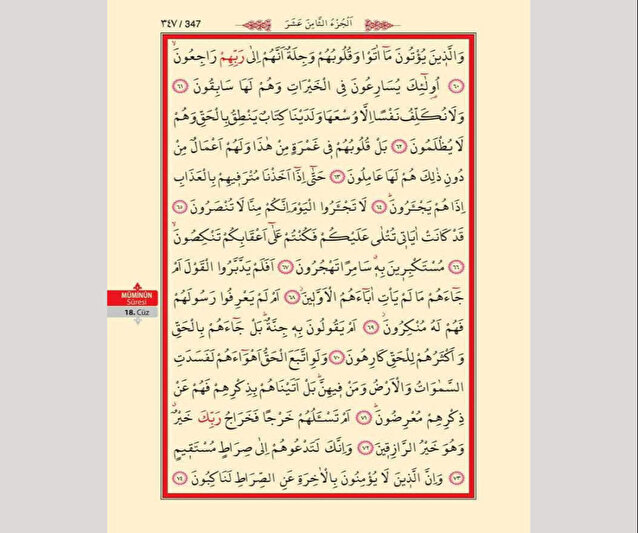 ٣٤٧ / 347
اَلْجُزْءُ الثَّامِنَ عَشَرَ
وَالَّذٖينَ يُؤْتُونَ مَٓا اٰتَوْا وَقُلُوبُهُمْ وَجِلَةٌ اَنَّهُمْ اِلٰى رَبِّهِمْ رَاجِعُونَۙ
﴿٦٠﴾ اُو۬لٰٓئِكَ يُسَارِعُونَ فِي الْخَيْرَاتِ وَهُمْ لَهَا سَابِقُونَ ﴿٦١﴾
وَلَا نُكَلِّفُ نَفْسًا اِلَّا وُسْعَهَا وَلَدَيْنَا كِتَابٌ يَنْطِقُ بِالْحَقِّ وَهُمْ
لَا يُظْلَمُونَ ﴿٦٢﴾ بَلْ قُلُوبُهُمْ فٖي غَمْرَةٍ مِنْ هٰذَا وَلَهُمْ اَعْمَالٌ مِنْ
دُونِ ذٰلِكَ هُمْ لَهَا عَامِلُونَ ﴿٦٣﴾ حَتّٰٓى اِذَٓا اَخَذْنَا مُتْرَفٖيهِمْ بِالْعَذَابِ
اِذَا هُمْ يَجْـَٔرُونَۜ ﴿٦٤﴾ لَا تَجْـَٔرُوا الْيَوْمَ اِنَّكُمْ مِنَّا لَا تُنْصَرُونَ ﴿٦٥﴾
قَدْ كَانَتْ اٰيَاتٖي تُتْلٰى عَلَيْكُمْ فَكُنْتُمْ عَلٰٓى اَعْقَابِكُمْ تَنْكِصُونَۙ
﴿٦٦﴾ مُسْتَكْبِرٖينَ بِهٖ سَامِرًا تَهْجُرُونَ ﴿٦٧﴾ اَفَلَمْ يَدَّبَّرُوا الْقَوْلَ اَمْ
جَٓاءَهُمْ مَا لَمْ يَأْتِ اٰبَٓاءَهُمُ الْاَوَّلٖينَۘ ﴿٦٨﴾ اَمْ لَمْ يَعْرِفُوا رَسُولَهُمْ
فَهُمْ لَهُ مُنْكِرُونَۘ ﴿٦٩﴾ اَمْ يَقُولُونَ بِهٖ جِنَّةٌۜ بَلْ جَٓاءَهُمْ بِالْحَقِّ
وَاَكْثَرُهُمْ لِلْحَقِّ كَارِهُونَ ﴿٧٠﴾ وَلَوِ اتَّبَعَ الْحَقُّ اَهْوَٓاءَهُمْ لَفَسَدَتِ
السَّمٰوَاتُ وَالْاَرْضُ وَمَنْ فٖيهِنَّۜ بَلْ اَتَيْنَاهُمْ بِذِكْرِهِمْ فَهُمْ عَنْ
ذِكْرِهِمْ مُعْرِضُونَۜ ﴿٧١﴾ اَمْ تَسْـَٔلُهُمْ خَرْجًا فَخَرَاجُ رَبِّكَ خَيْرٌۗ
وَهُوَ خَيْرُ الرَّازِقٖينَ ﴿٧٢﴾ وَاِنَّكَ لَتَدْعُوهُمْ اِلٰى صِرَاطٍ مُسْتَقٖيمٍ
﴿٧٣﴾ وَاِنَّ الَّذٖينَ لَا يُؤْمِنُونَ بِالْاٰخِرَةِ عَنِ الصِّرَاطِ لَنَاكِبُونَ ﴿٧٤﴾
MÜMİNÛN
Sûresi
18. Cüz